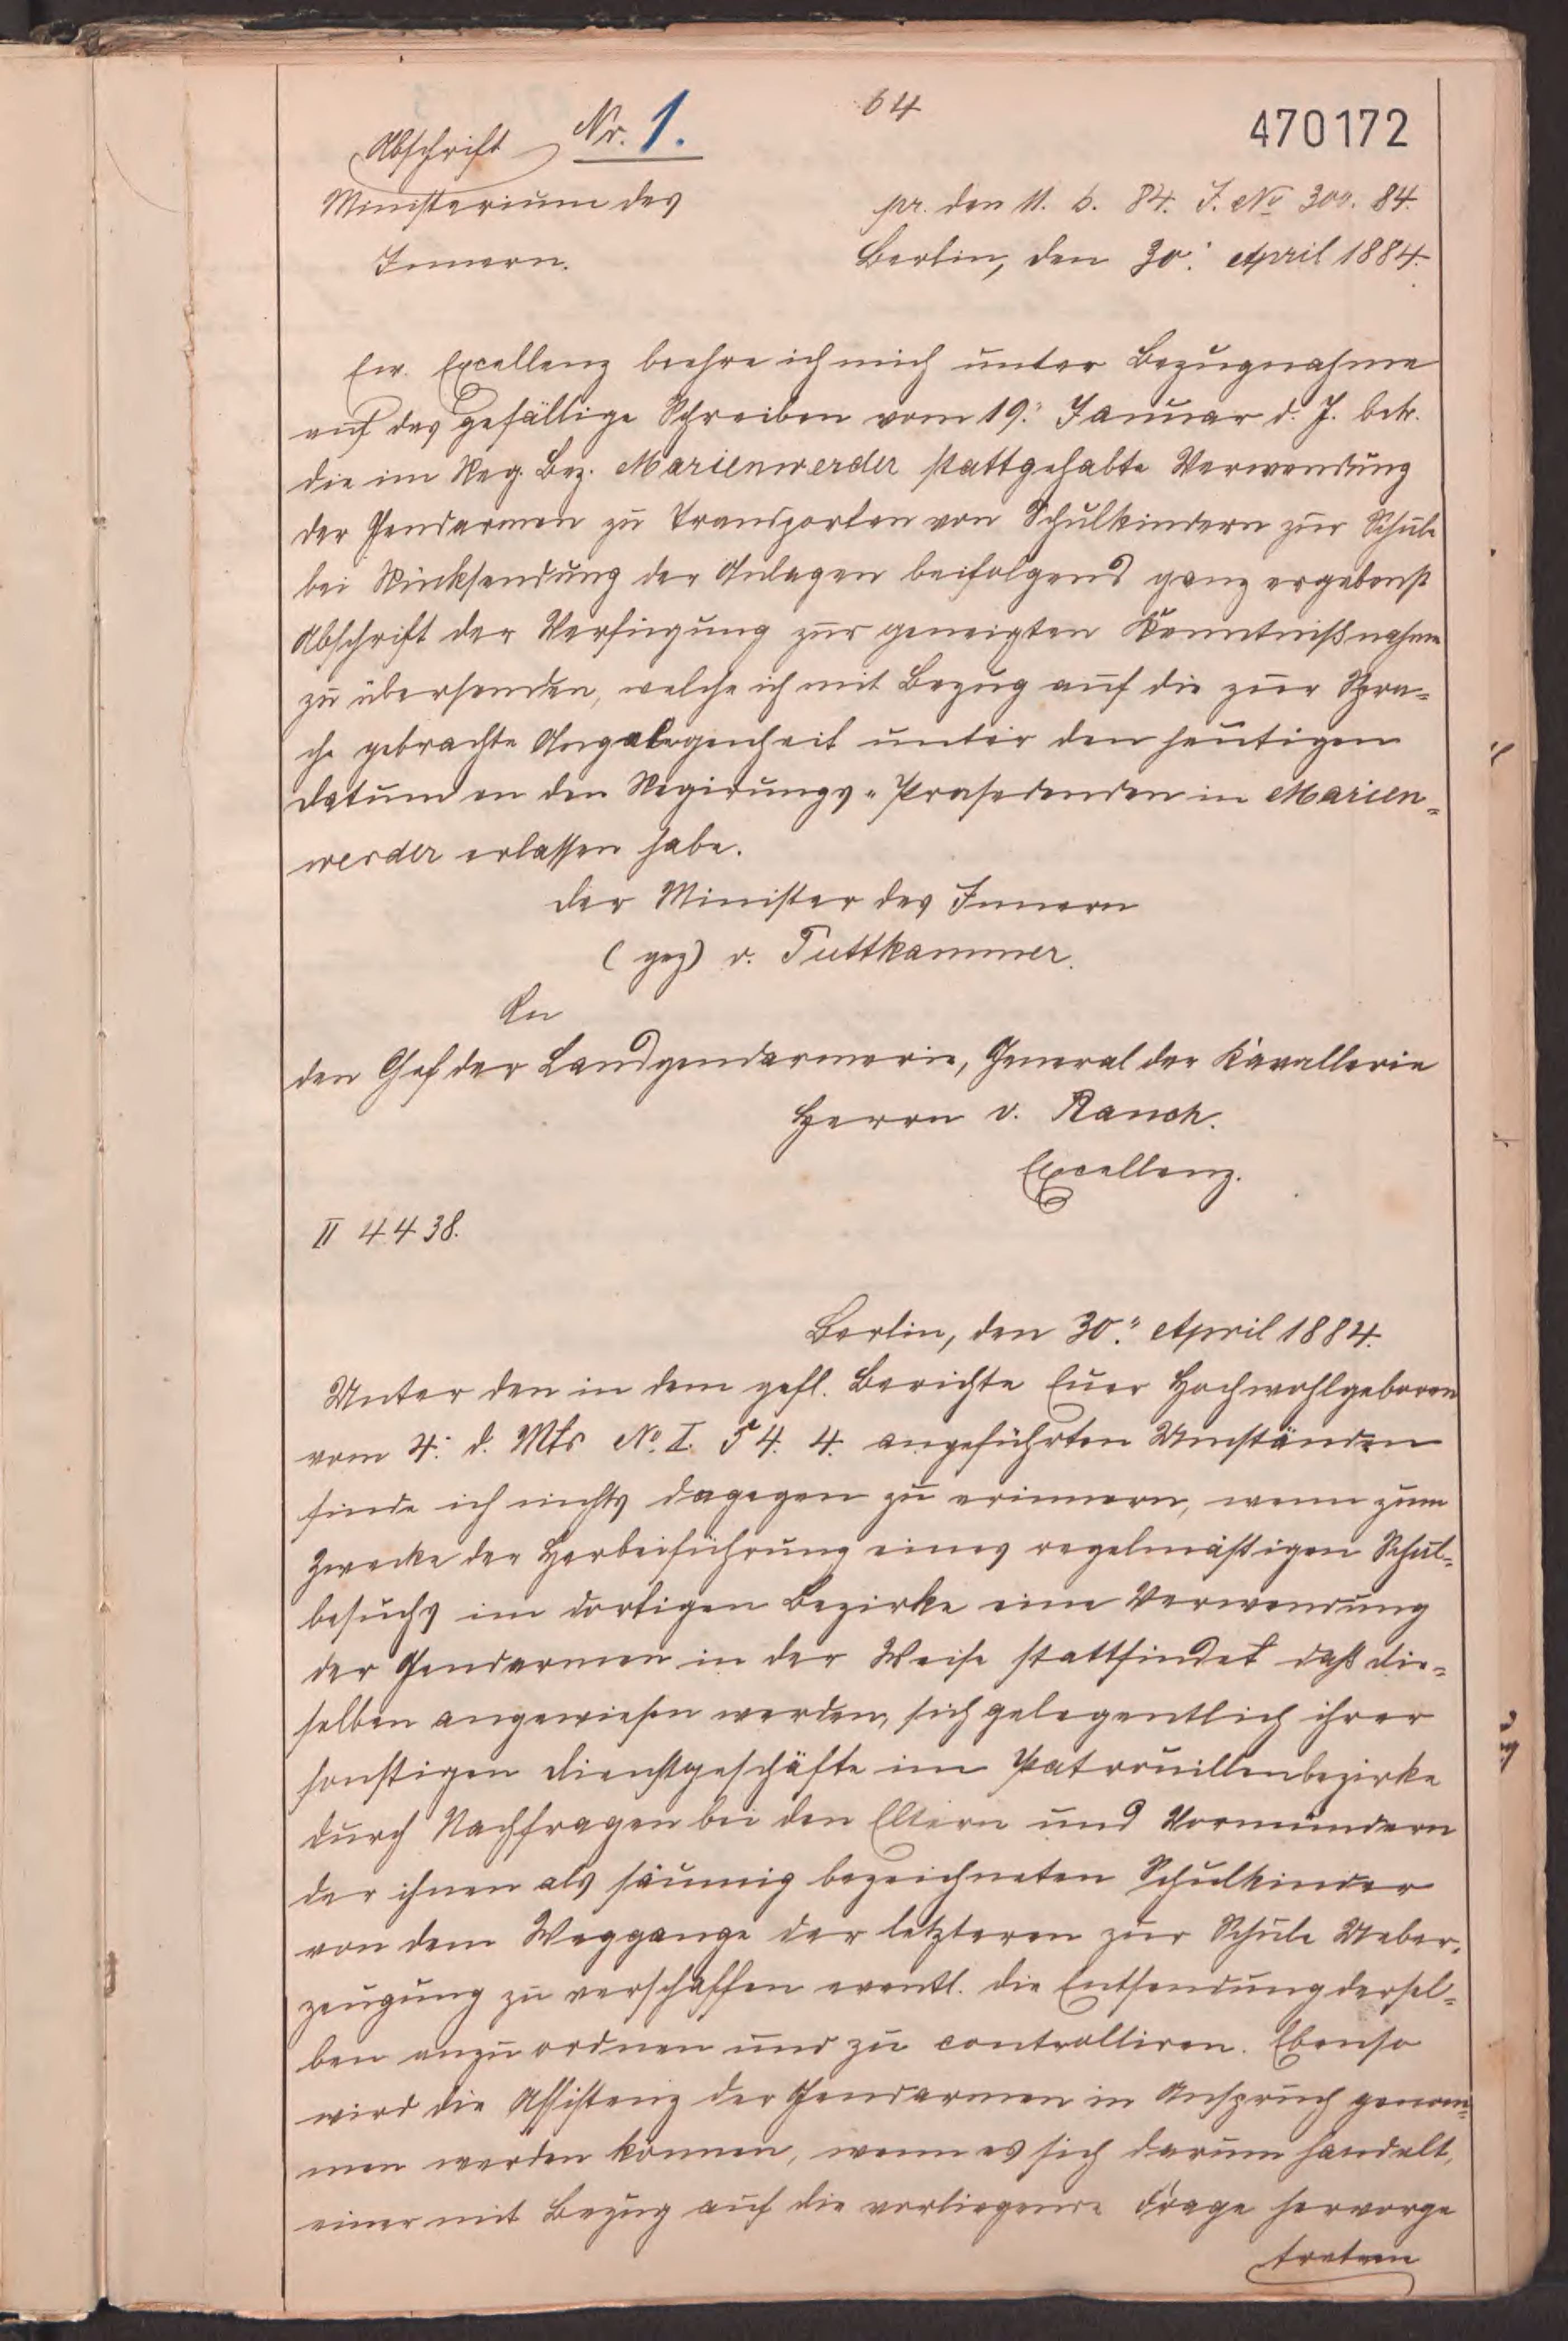 64
470172
Abschrift Nr. 1.
Ministerium des
Innern.
pr. den 11. 6. 84. J. No 300. 84.
Berlin, den 30. April 1884.
Ew. Excellenz beehre ich mich unter Bezugnahme
auf das gefällige Schreiben vom 19. Januar d. J. betr.
die im Reg. Bez. Marienwerder stattgehabte Verwendung
der Gendarmen zu Transporten von Schulkindern zur Schule
bei Rücksendung der Anlagen beifolgend ganz ergebenst
Abschrift der Verfügung zur geneigten Kenntnißnahme
zu übersenden, welche ich mit Bezug auf die zur Spra-
che gebrachte Angelegenheit unter den heutigen
Datum an den Regirungs-Praesedenden in Marien-
werder erlassen habe.
Der Minister des Innern
(gez) v. Puttkammer.
An
den Chef der Landgendarmerie, General der Kavallerie
Herrn v. Rauch.
Excellenz.
II 4438.
Berlin, den 30. April 1884.
Unter den in dem gefl. Berichte Euer Hochwohlgeboren
vom 4. d. Mts No. I. 54. 4. angeführten Umständen
finde ich nichts dagegen zu erinnern, wenn zum
Zwecke der Herbeiführung eines regelmäßigen Schul-
besuchs im dortigen Bezirke eine Verwendung
der Gendarmen in der Weise stattfindet daß die-
selben angewiesen werden, sich gelegentlich ihrer
sonstigen Dienstgeschäfte im Patrouillenbezirke
durch Nachfragen bei den Eltern und Vormündern
der ihnen als säumig bezeichneten Schulkinder
von dem Weggange der letzteren zur Schule Ueber-
zeugung zu verschaffen eventl. die Entsendung dersel-
ben anzuordnen und zu controlliren. Ebenso
wird die Assistenz der Gendarmen in Anspruch genom-
men werden können, wenn es sich darum handelt,
einer mit Bezug auf die vorliegende Frage hervorge
tretnen